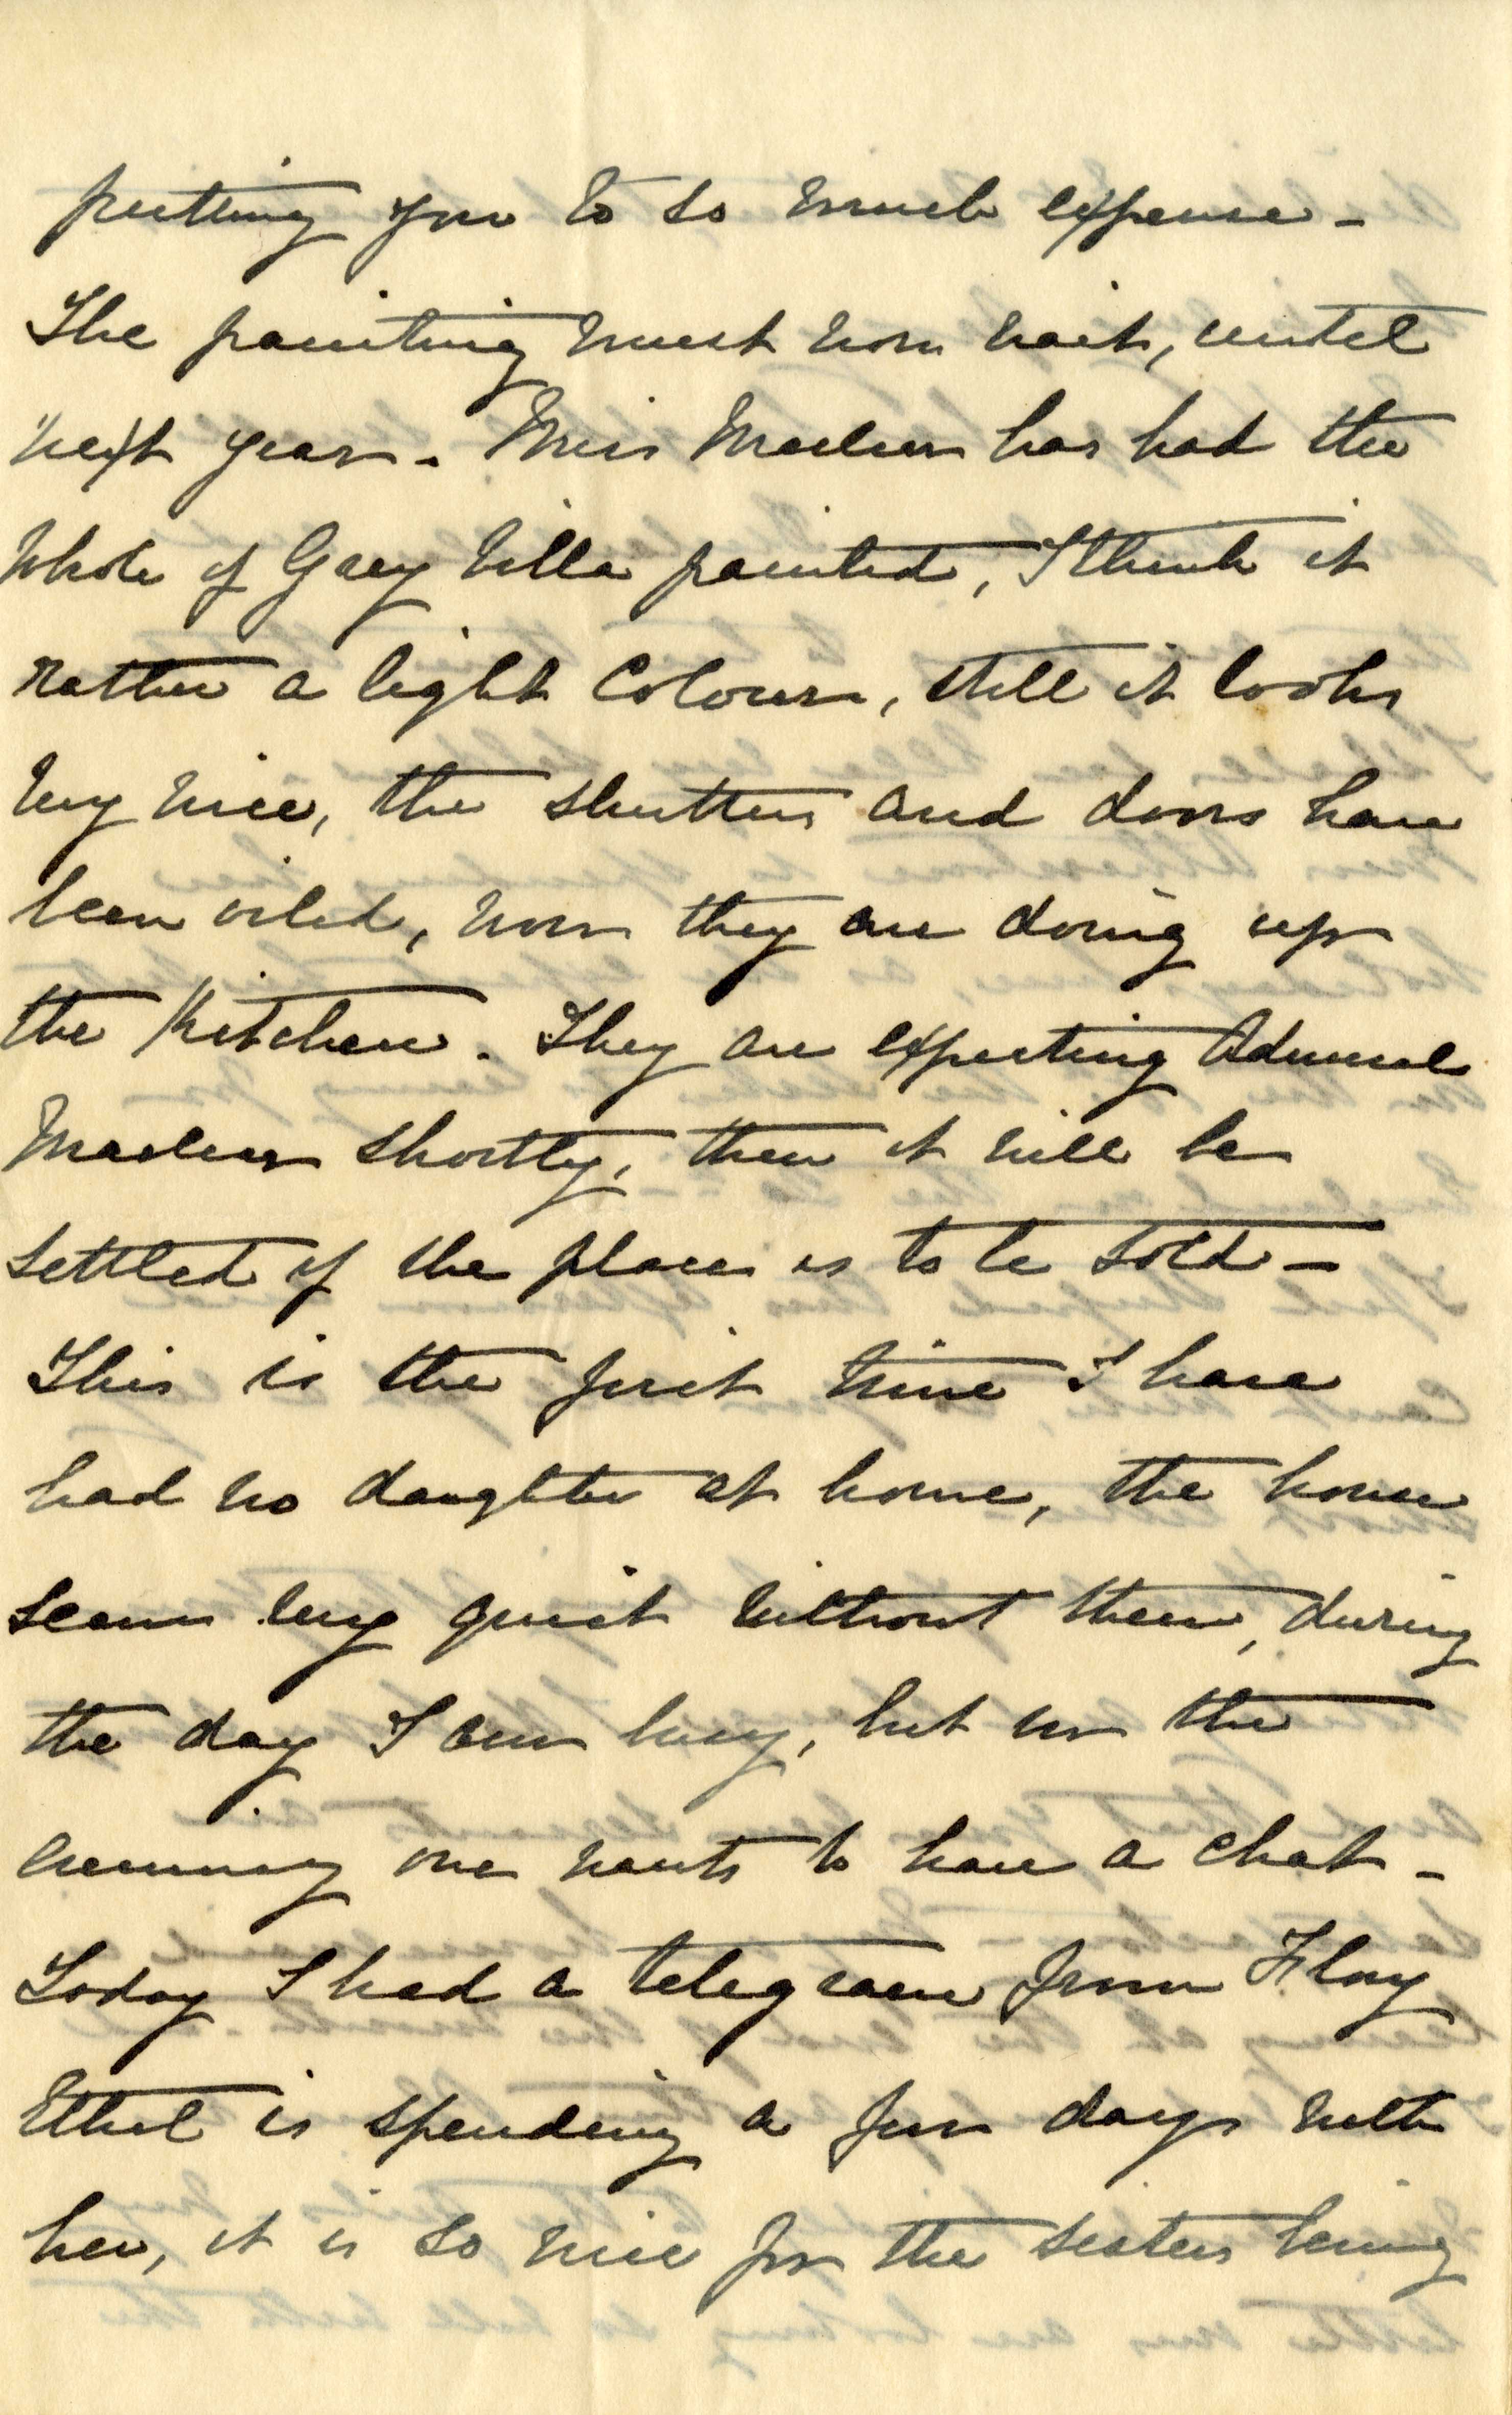 putting you to so much expense -
The painting must now wait, until
next year. Miss Maclear has had the
whole of Grey Villa painted, I think it
rather a light colour, still it looks
very nice, the shutters and doors have
been oiled, now they are doing up
the Kitchen. They are expecting Admiral
Maclear shortly, then it will be
settled if the place is to be sold -
This is the first time I have
had no daughter at home, the house
seems very quiet without them, during
the day I am busy, but in the
evening one wants to have a chat -
Today I had a telegram from Flory
Ethel is spending a few days with
her, it is so nice for the sisters being